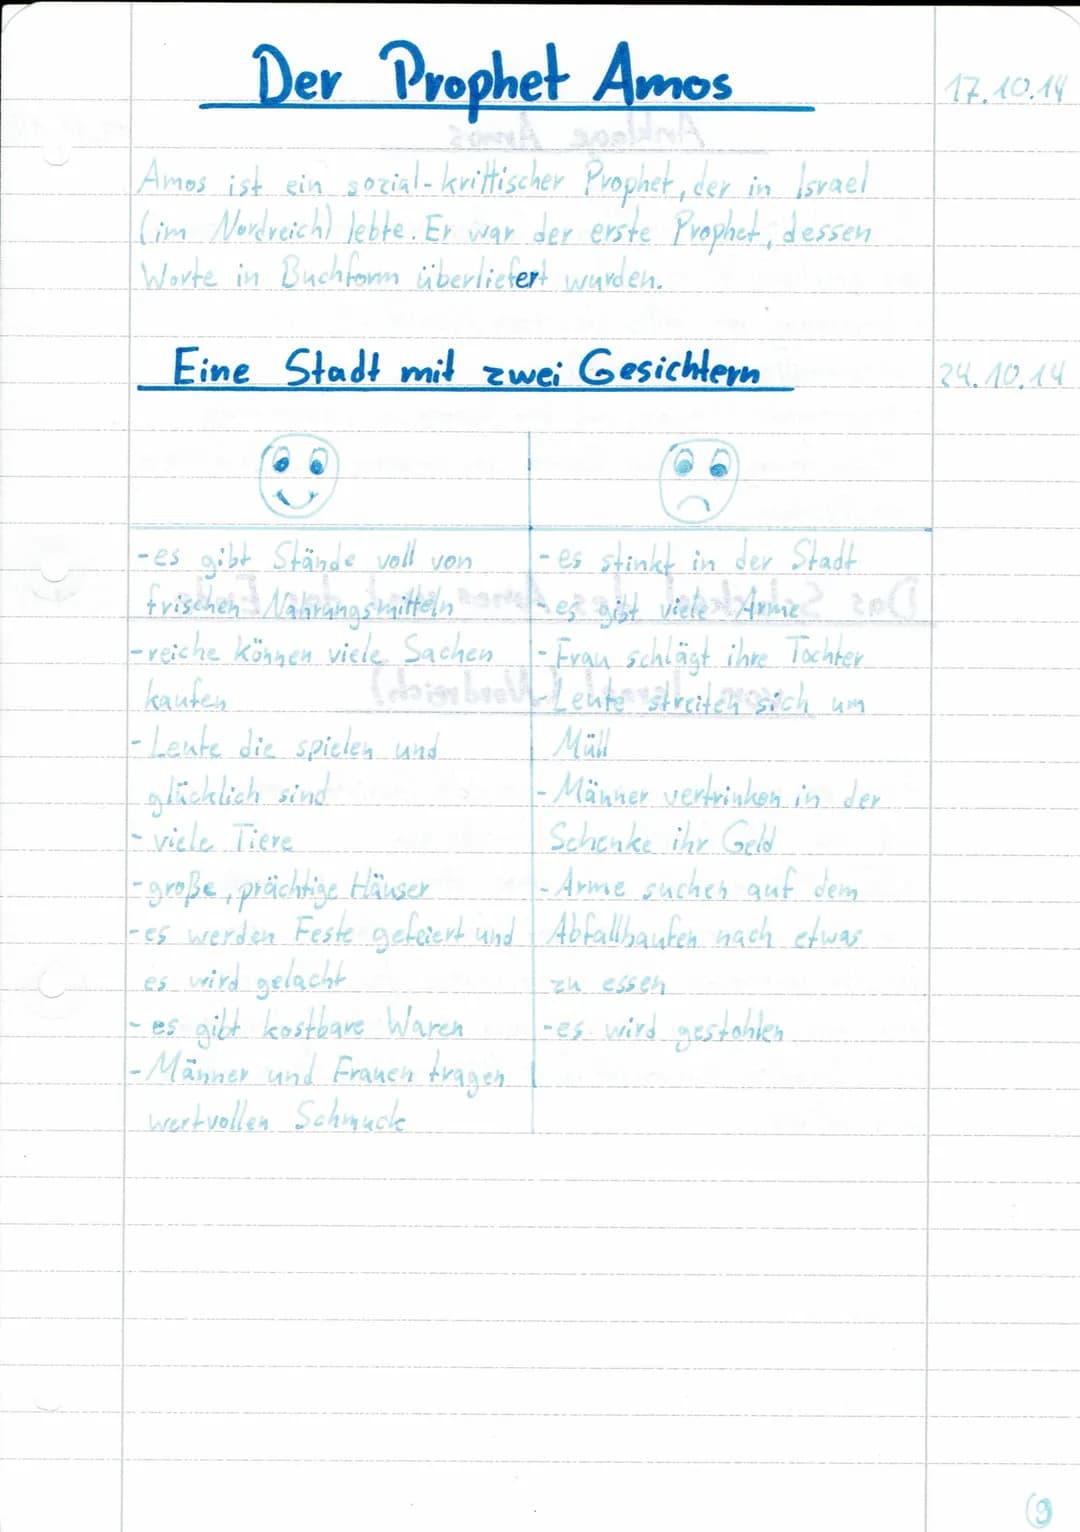 Der Prophet Amos
17.10.14
Amos ist ein sozial-krittischer Prophet, der in Israel
(im Nordreich) lebte. Er war der erste Prophet, dessen
Worte in Buchform überliefert wurden.
Eine Stadt mit zwei Gesichtern
24.10.14
-es gibt Stände voll von
frischen Nahrungsmitteln
-reiche können viele Sachen
kaufen
-Leute die spielen und
glücklich sind
-viele Tiere
-große, prächtige Häuser
-es werden Feste gefeiert und
es wird gelacht
-es gibt kostbare Waren
-Männer und Frauen tragen
wertvollen Schmuck
-es stinkt in der Stadt
-es gibt viele Arme
-Frau schlägt ihre Tochter
-Leute streiten sich um
Müll
-Männer vertrinken in der
Schenke ihr Geld
-Arme suchen auf dem
Abfallhaufen nach etwas
zu essen
-es wird gestohlen
(9